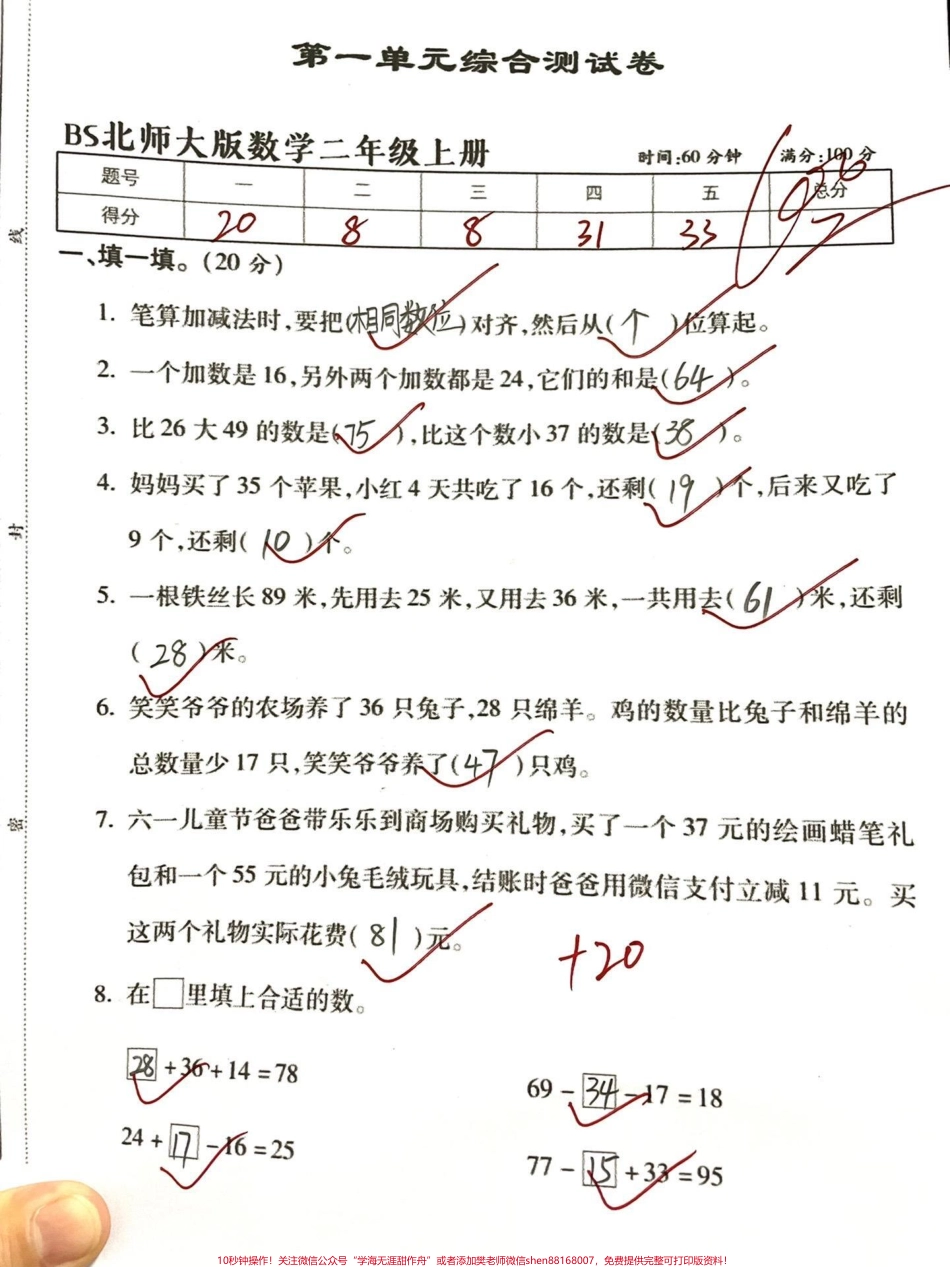 第一单元综合测试卷
BS北师大版数学二年级上册 时间:60分钟 满分:100分
题号 一 二 三 四 五 总分
得分 20 8 8 31 33
一、填一填。(20分)
1. 笔算加减法时,要把(相同数位)对齐,然后从(个)位算起。
2. 一个加数是16,另外两个加数都是24,它们的和是(64)。
3. 比26大49的数是(75),比这个数小37的数是(38)。
4. 妈妈买了35个苹果,小红4天共吃了16个,还剩(19)个,后来又吃了
9个,还剩(10)个。
5. 一根铁丝长89米,先用去25米,又用去36米,一共用去(61)米,还剩
(28)米。
6. 笑笑爷爷的农场养了36只兔子,28只绵羊。鸡的数量比兔子和绵羊的
总数量少17只,笑笑爷爷养了(47)只鸡。
7. 六一儿童节爸爸带乐乐到商场购买礼物,买了一个37元的绘画蜡笔礼
包和一个55元的小兔毛绒玩具,结账时爸爸用微信支付立减11元。买
这两个礼物实际花费(81)元。
+20
8. 在□里填上合适的数。
28+36+14=78
69-34-17=18
24+17-16=25
77-15+33=95
线
封
密
10秒钟操作!关注微信公众号“学海无涯甜作舟”或者添加樊老师微信shen88168007,免费提供完整可打印版资料!